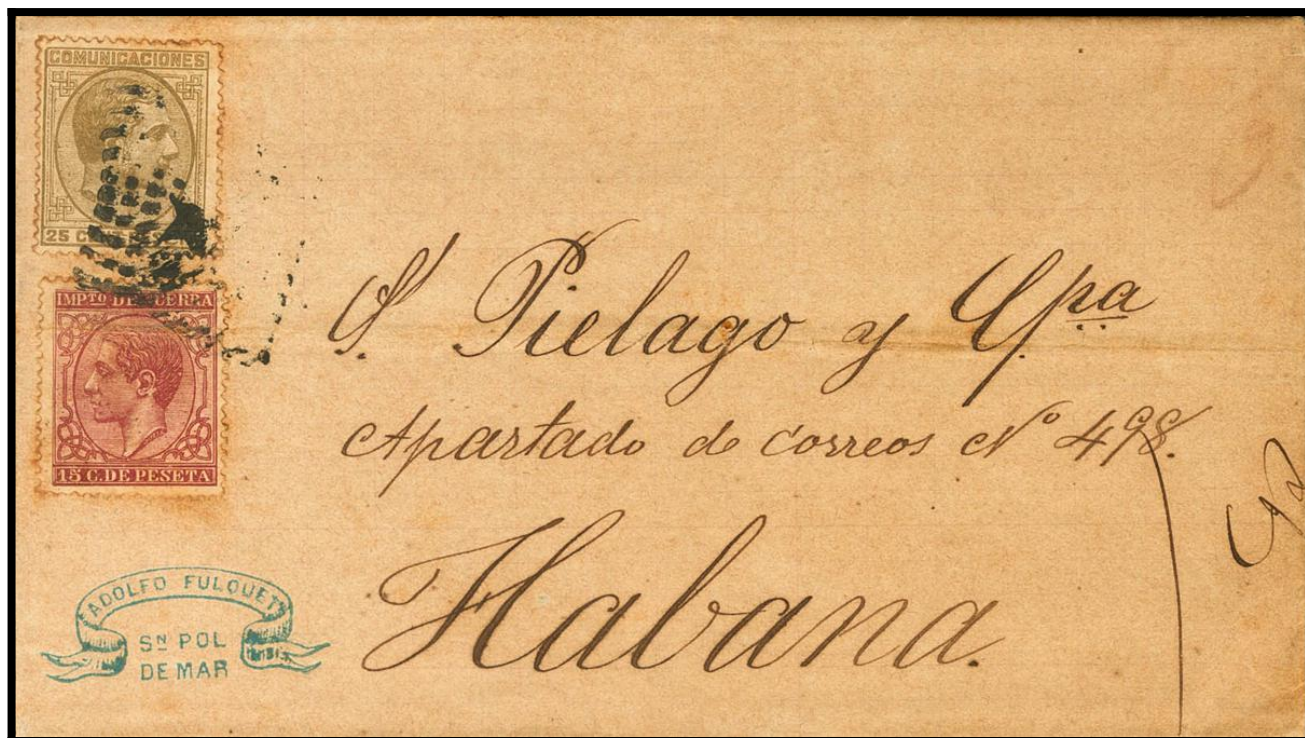 COMUNICACIONES
25
IMPTO DE GUERRA
15 C. DE PESETA
S. Pielago y Cpa
Apartado de correos No 498.
Habana.
ADOLFO FULQUET
SN POL
DE MAR